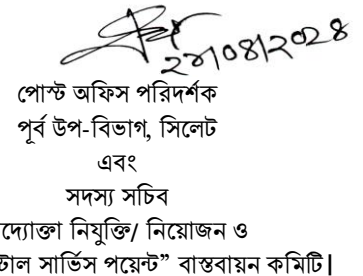 পোস্ট অফিস পরিদর্শক
পূর্ব উপ-বিভাগ, সিলেট
এবং
সদস্য সচিব
দ্যোক্তা নিযুক্তি/ নিয়োজন ও
টাল সার্ভিস পয়েন্ট” বাস্তবায়ন কমিটি|